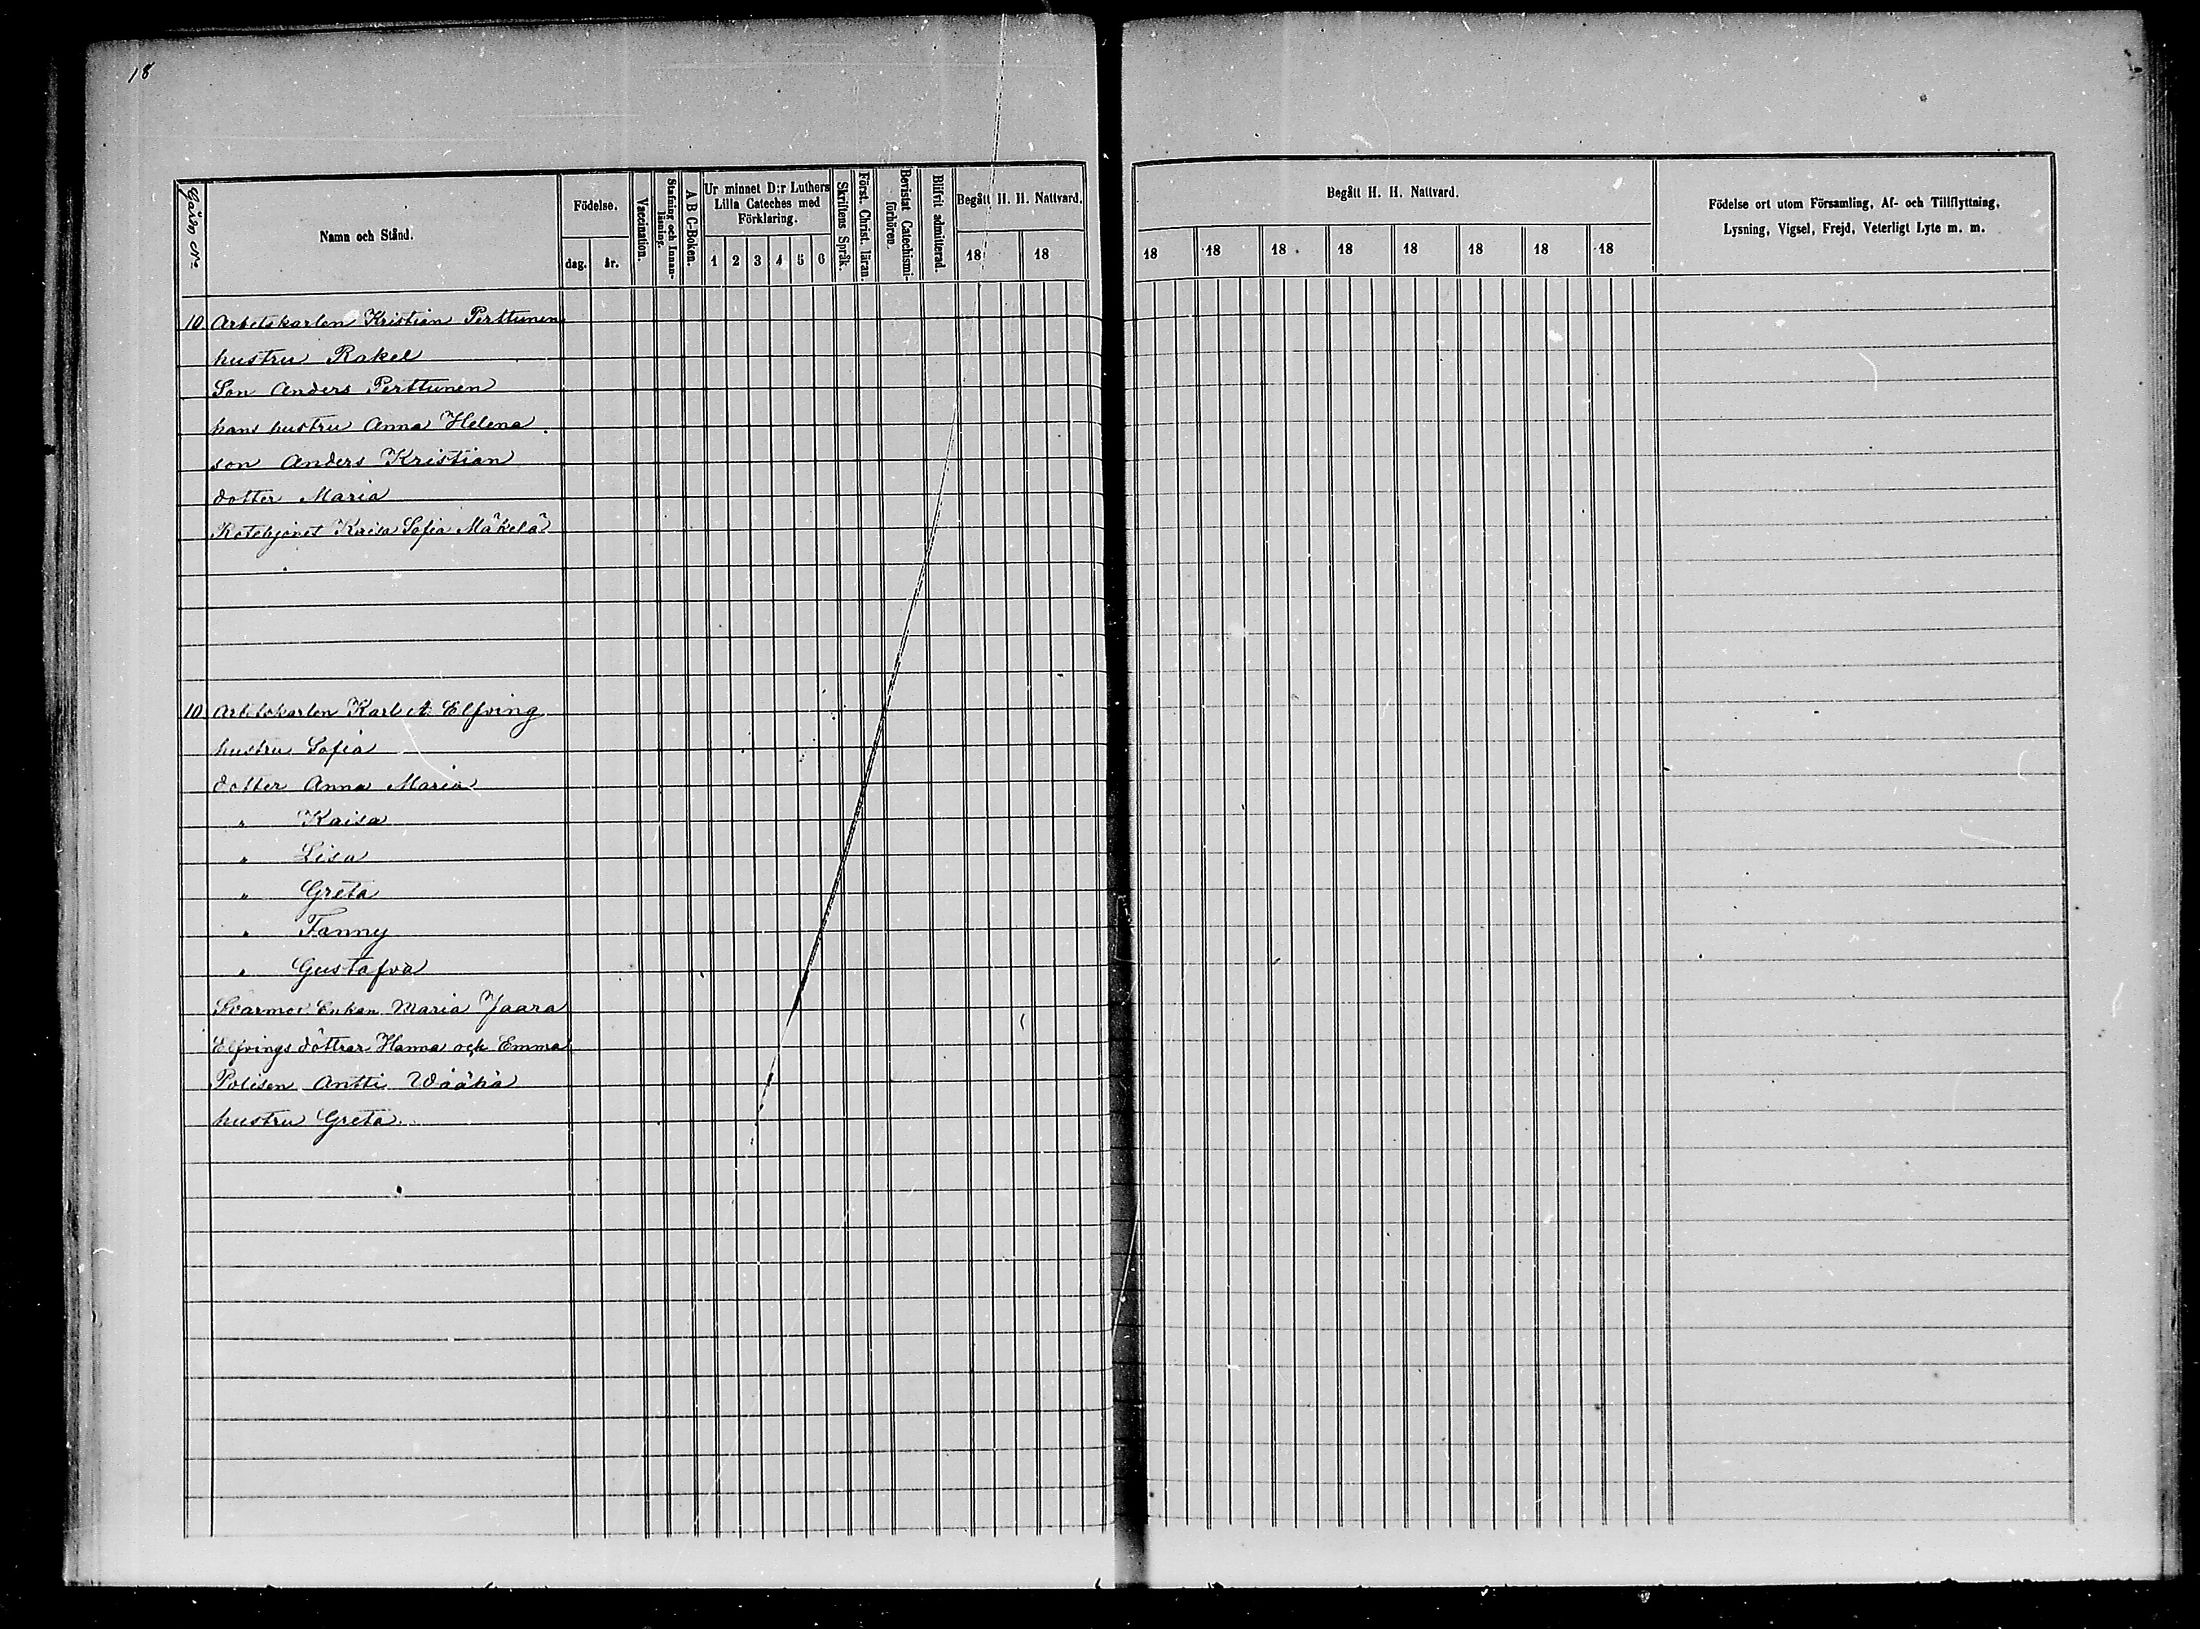 18
Gård No
Namn och Stånd.
Födelse.
dag.
år.
Vaccination.
Stafning och Innan-
läsning.
A B C-Boken.
Ur minnet D:r Luthers
Lilla Cateches med
Förklaring.
1 2 3 4 5 6
Skriftens Språk.
Först. Christ. läran.
Bevistat Catechismi-
förhören.
Blifvit admitterad.
Begått H. H. Nattvard.
18 18
Begått H. H. Nattvard.
18 18 18 18 18 18 18 18
Födelse ort utom Församling, Af- och Tillflyttning,
Lysning, Vigsel, Frejd, Veterligt Lyte m. m.
10 Arbetskarlen Kristian Perttunen
hustru Rakel
Son Anders Perttunen
hans hustru Anna Helena
son Anders Kristian
dotter Maria
Rotehjonet Kaisa Sofia Mäkelä
10 Arbetskarlen Karl A. Elfving
hustru Sofia
dotter Anna Maria
" Kaisa
" Lisa
" Greta
" Fanny
" Gustafva
Svärmor Enkan Maria Jaara
Elfvings döttrar Hanna och Emma
Polisen Antti Wäähä
hustru Greta